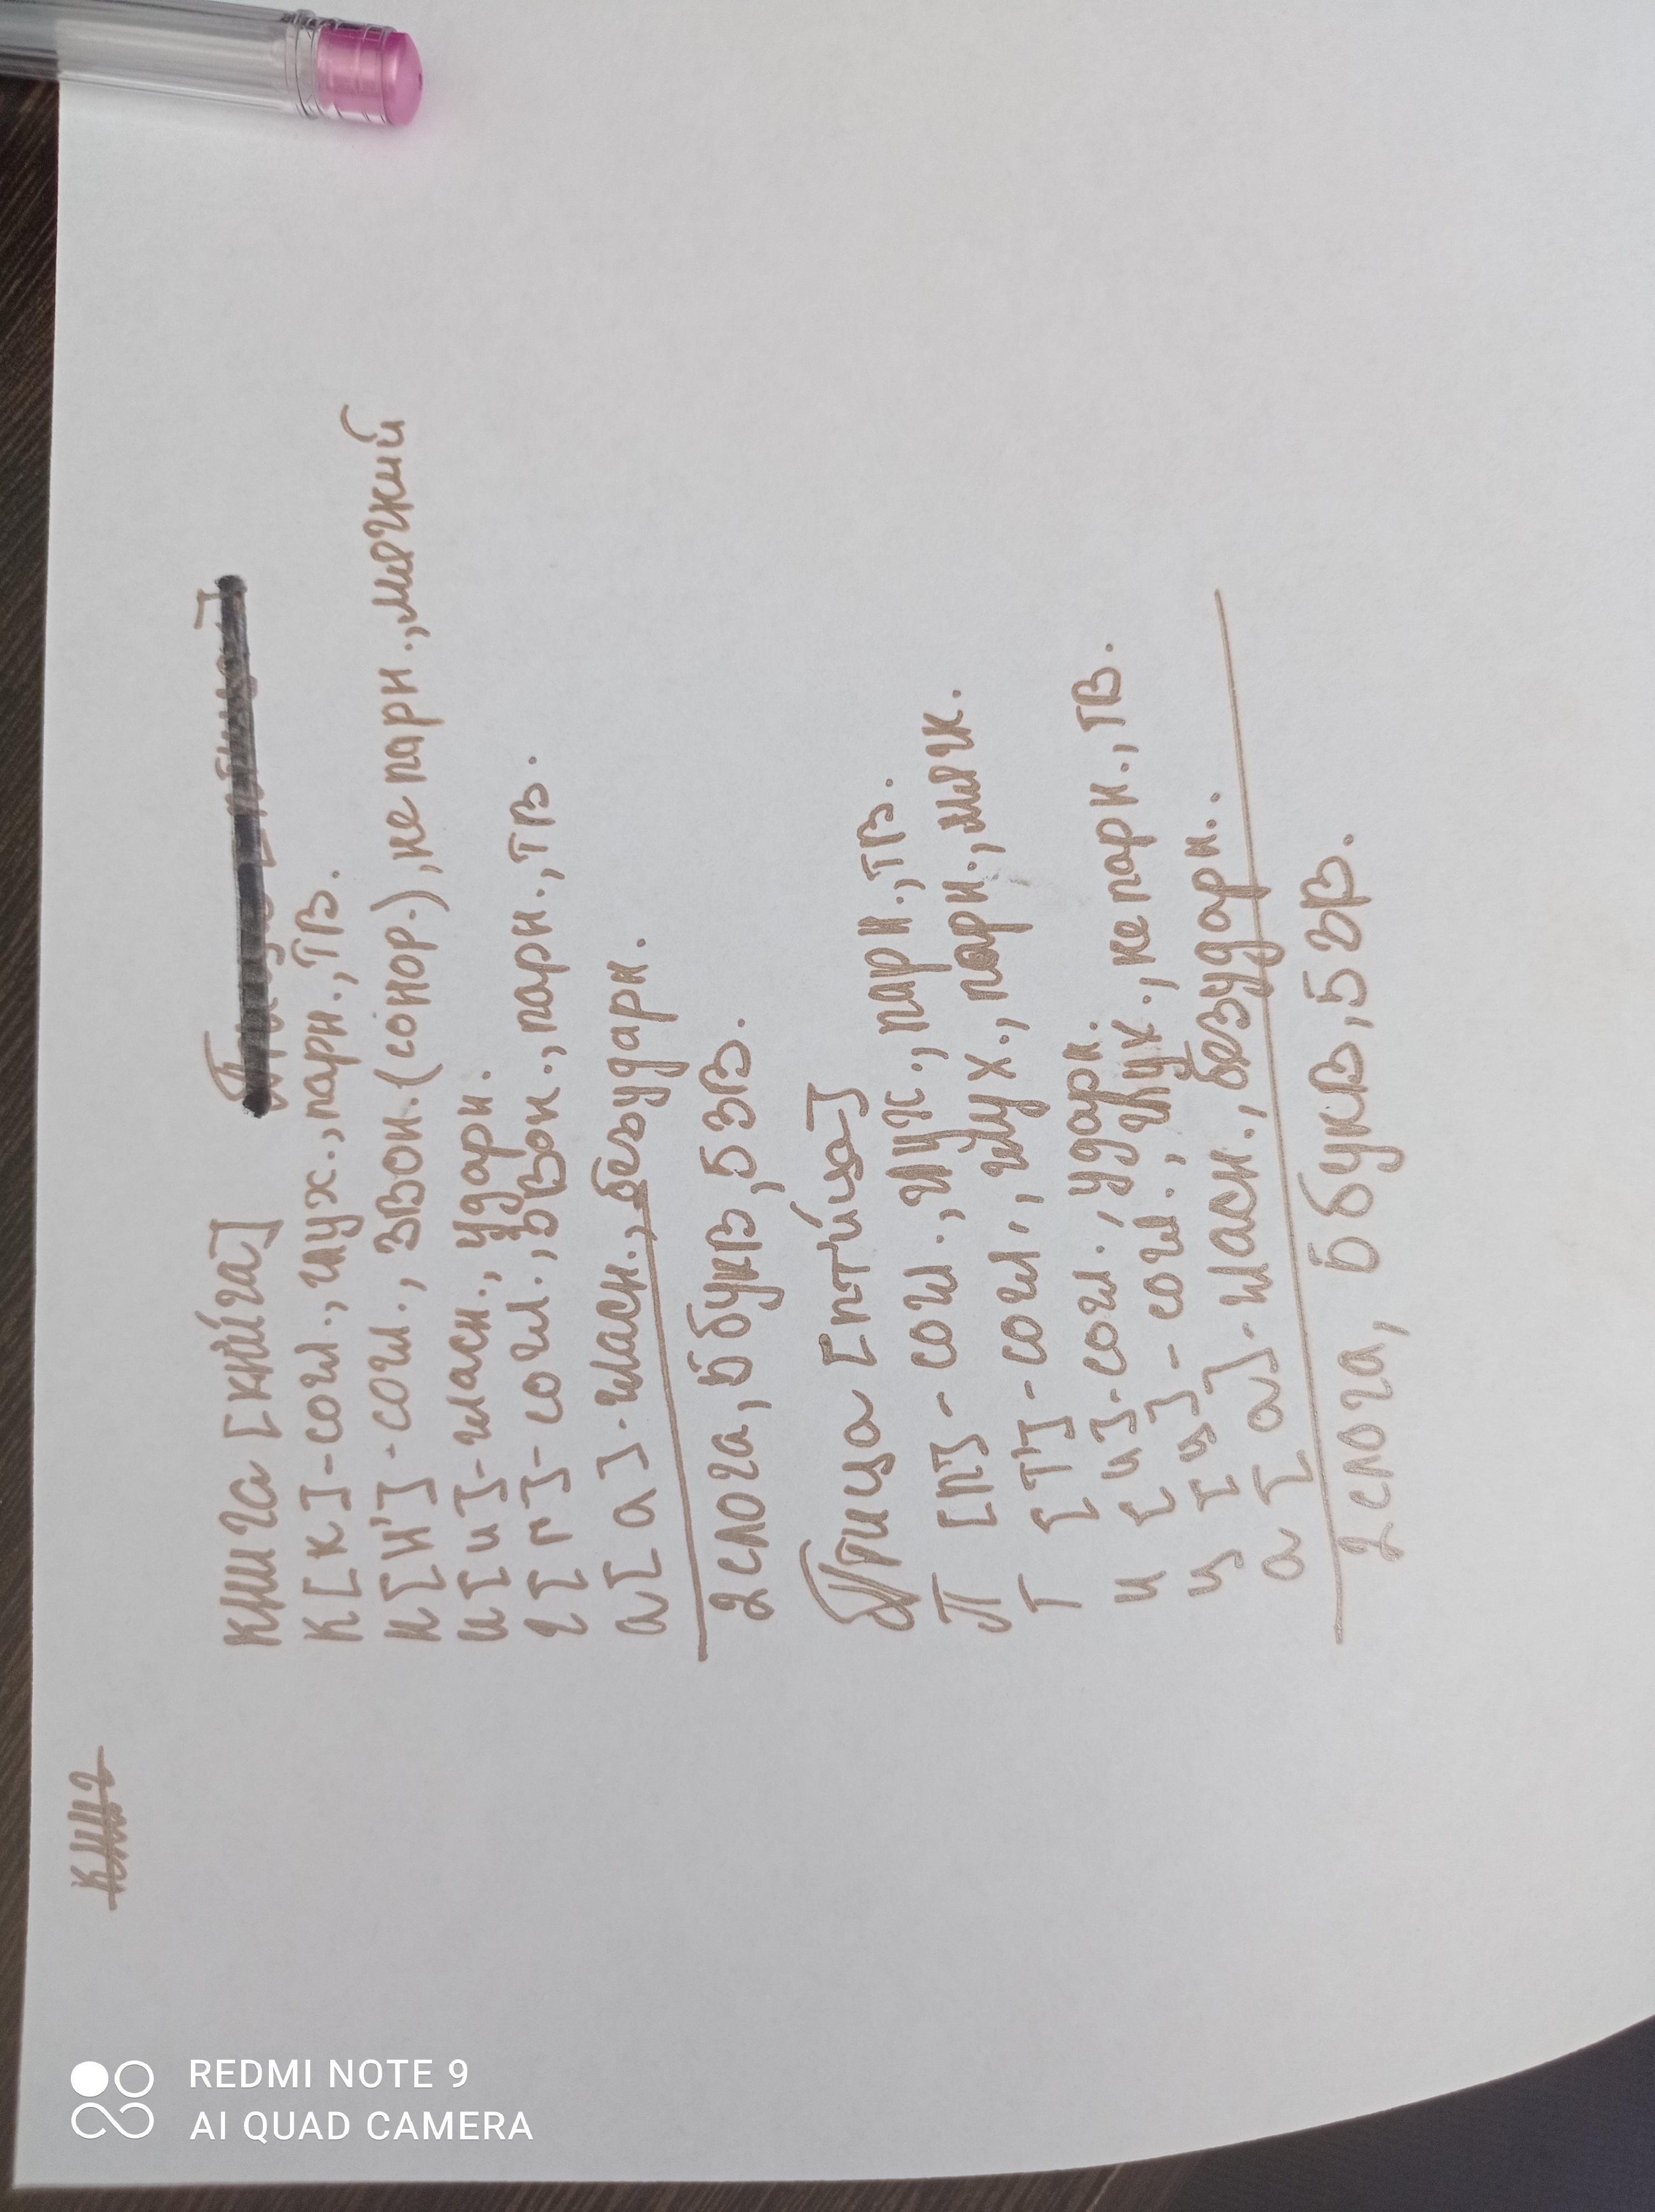 книга [кни́га]
к [к] - согл., глух., парн., тв.
н [н'] - согл., звон. (сонор.), не парн., мягкий
и [и] - гласн., ударн.
г [г] - согл., звон., парн., тв.
а [а] - гласн., безударн.
2 слога, 5 букв, 5 зв.
Птица [пти́ца]
П [п] - согл., глух., парн., тв.
т [т'] - согл., глух., парн., мягк.
и [и] - согл., ударн.
ц [ц] - согл., глух., не парн., тв.
а [а] - гласн., безударн.
2 слога, 5 букв, 5 зв.
REDMI NOTE 9
AI QUAD CAMERA